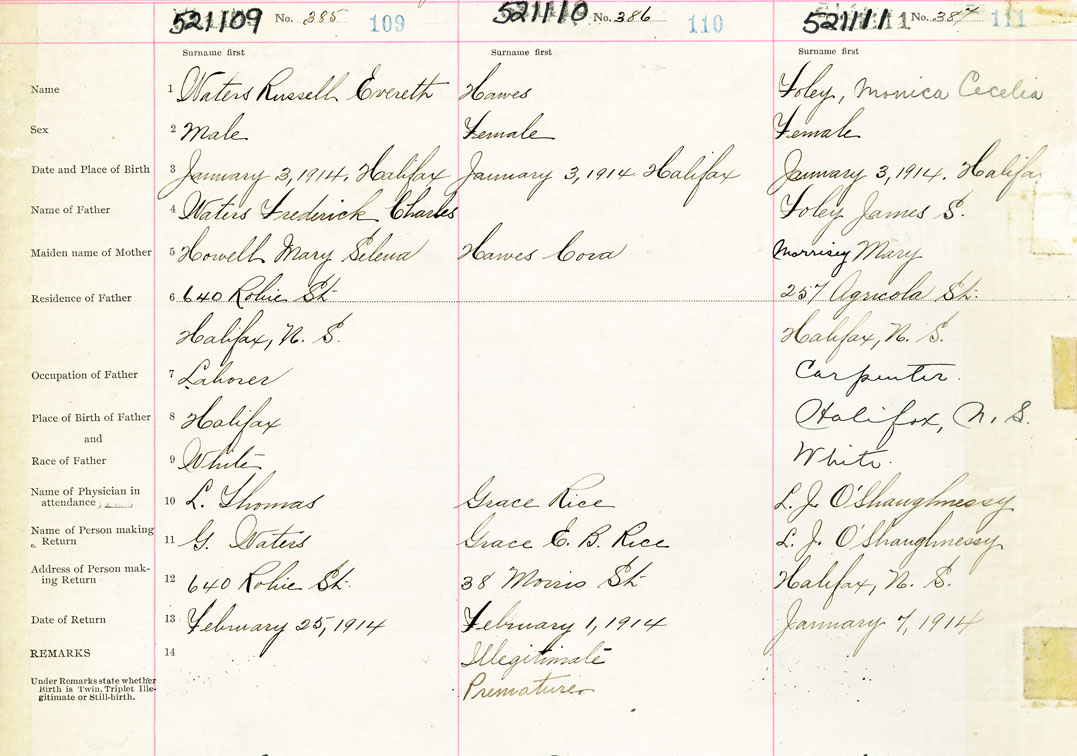 521109 No. 385 109 521110 No. 386 110 521111 No. 387 111
Surname first Surname first Surname first
Name 1 Waters Russell Evereth Hawes Foley, Monica Cecelia
Sex 2 Male Female Female
Date and Place of Birth 3 January 3, 1914. Halifax January 3, 1914 Halifax January 3, 1914. Halifax
Name of Father 4 Waters Frederick Charles Foley James S.
Maiden name of Mother 5 Howell Mary Selena Hawes Cora Morrisey Mary
Residence of Father 6 640 Robie St. 257 Agricola St.
Halifax, N. S. Halifax, N. S.
Occupation of Father 7 Laborer Carpenter.
Place of Birth of Father 8 Halifax Halifax, N. S.
and
Race of Father 9 White White.
Name of Physician in
attendance 10 L. Thomas Grace Rice L. J. O'Shaughnessy
Name of Person making
Return 11 G. Waters Grace E. B. Rice L. J. O'Shaughnessy
Address of Person mak-
ing Return 12 640 Robie St. 38 Morris St. Halifax, N. S.
Date of Return 13 February 25, 1914 February 1, 1914 January 7, 1914
REMARKS 14 Illegitimate
Under Remarks state whether
Birth is Twin, Triplet Ille-
gitimate or Still-birth.
Premature